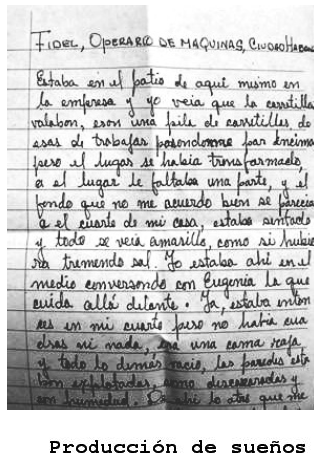 FIDEL, OPERARIO DE MAQUINAS, CIUDAD HABANA
Estaba en el patio de aqui mismo en
la empresa y yo veia que la carretilla
valaban, eran una pila de carretillas de
esas de trabajar pasandome par encima
pero el lugar se habia transformado,
a el lugar le faltaba una parte, y el
fondo que no me acuerdo bien se parecia
a el cuarto de mi casa, estaba sentado
y todo se veia amarillo, como si hubie
ra tremendo sol. Yo estaba ahi en el
medio conversando con Eugenia la que
cuida allá delante. Ya, estaba enton
ces en mi cuarto pero no habia cua
dros ni nada, era una cama roja
y todo lo demás vacio, las paredes esta
ban explotadas, como descascaradas y
con humedad. De ahi lo otro que me
Producción de sueños